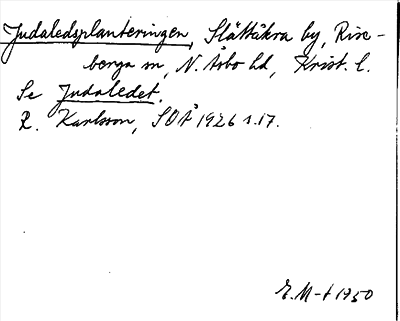 Judaledsplanteringen, Slättåkra by, Rise-
berga sn, N. Åsbo hd, Krist. l.
Se Judaledet.
R. Karlsson, SOÅ 1926 s. 17.
E. M-t 1950